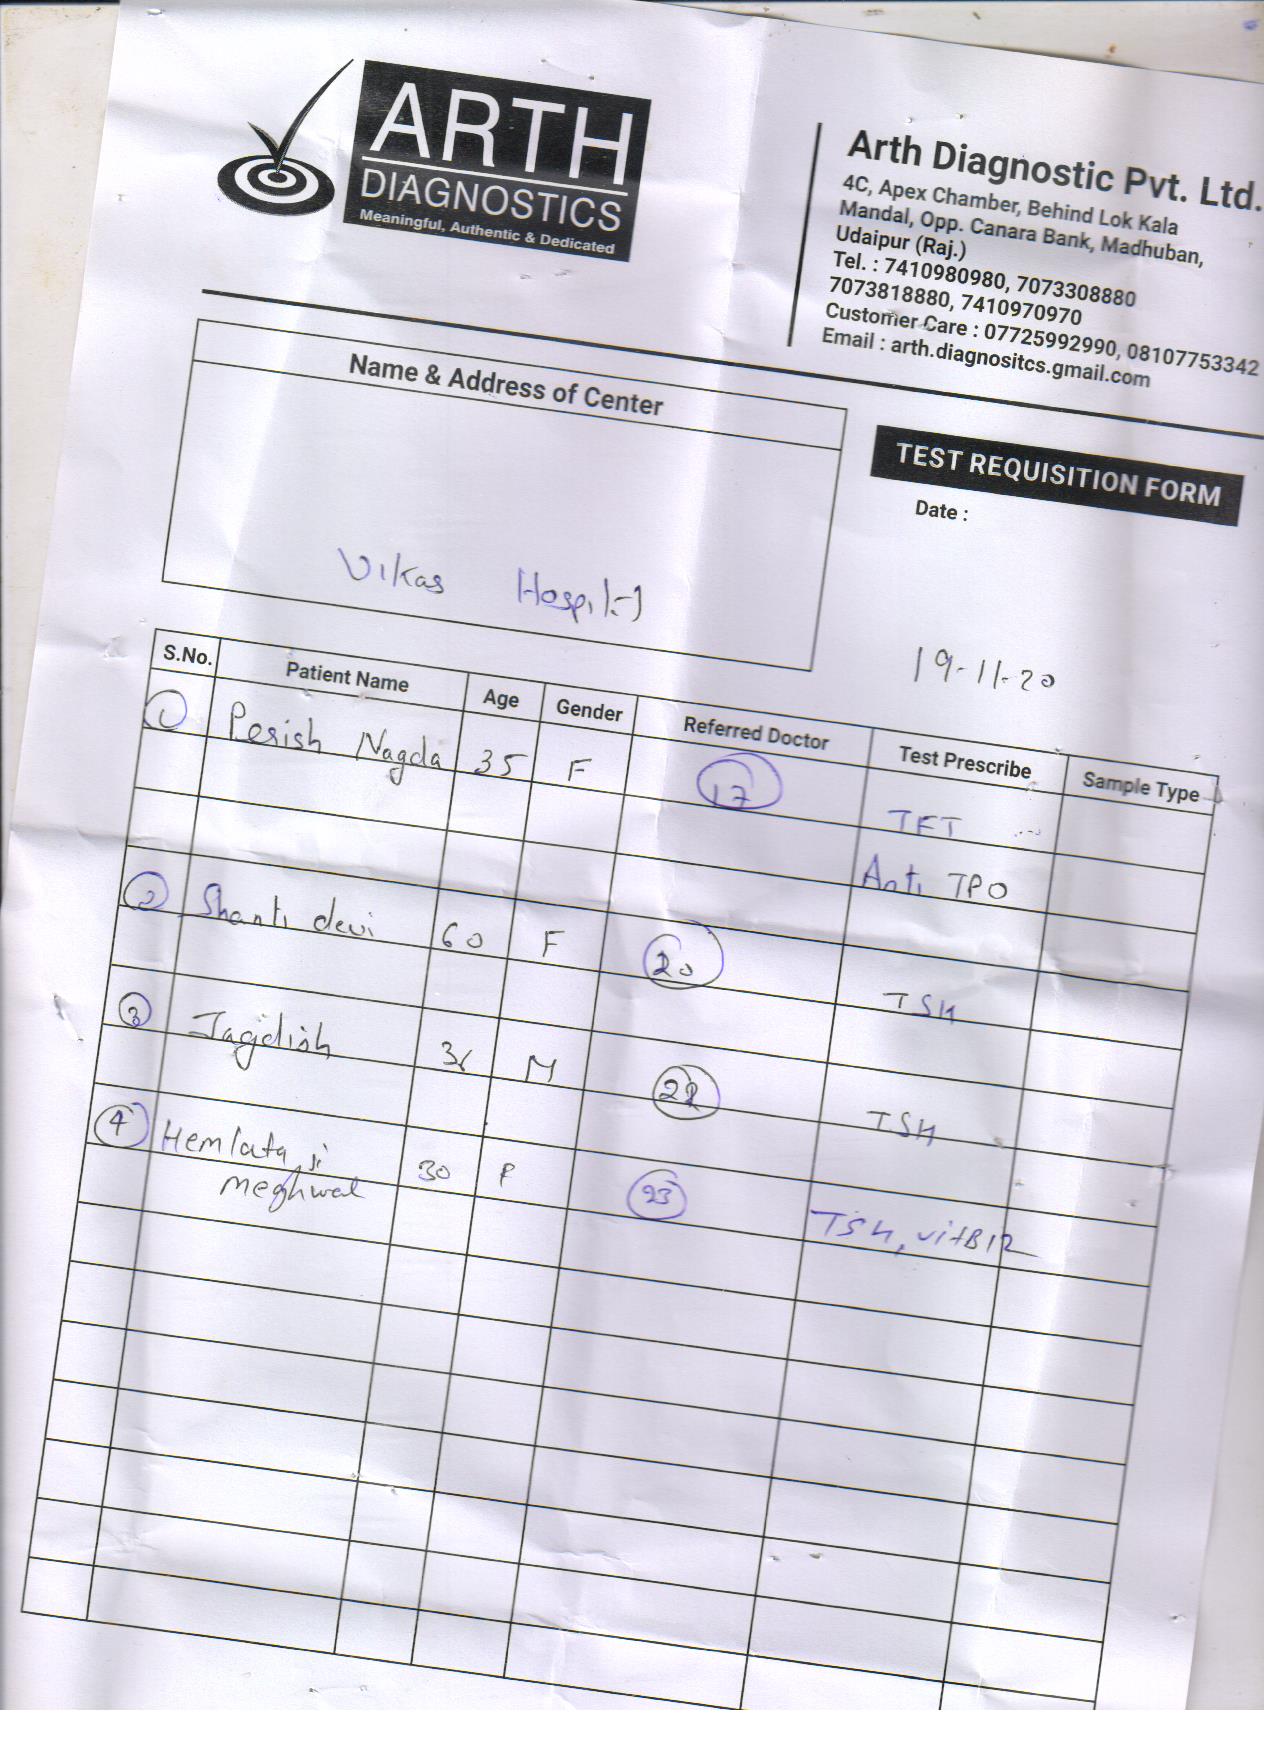 ARTH
DIAGNOSTICS
Meaningful, Authentic & Dedicated
Arth Diagnostic Pvt. Ltd.
4C, Apex Chamber, Behind Lok Kala
Mandal, Opp. Canara Bank, Madhuban,
Udaipur (Raj.)
Tel. : 7410980980, 7073308880
7073818880, 7410970970
Customer Care : 07725992990, 08107753342
Email : arth.diagnositcs.gmail.com
Name & Address of Center
Vikas Hospital
TEST REQUISITION FORM
Date :
19-11-20
S.No. Patient Name Age Gender Referred Doctor Test Prescribe Sample Type
1 Perish Nagda 35 F 17 TFT
Anti TPO
2 Shanti devi 60 F 20 TSH
3 Jagdish M TSH
4 Hemlata ji 30 F 23 TSH, vitB12
meghwal